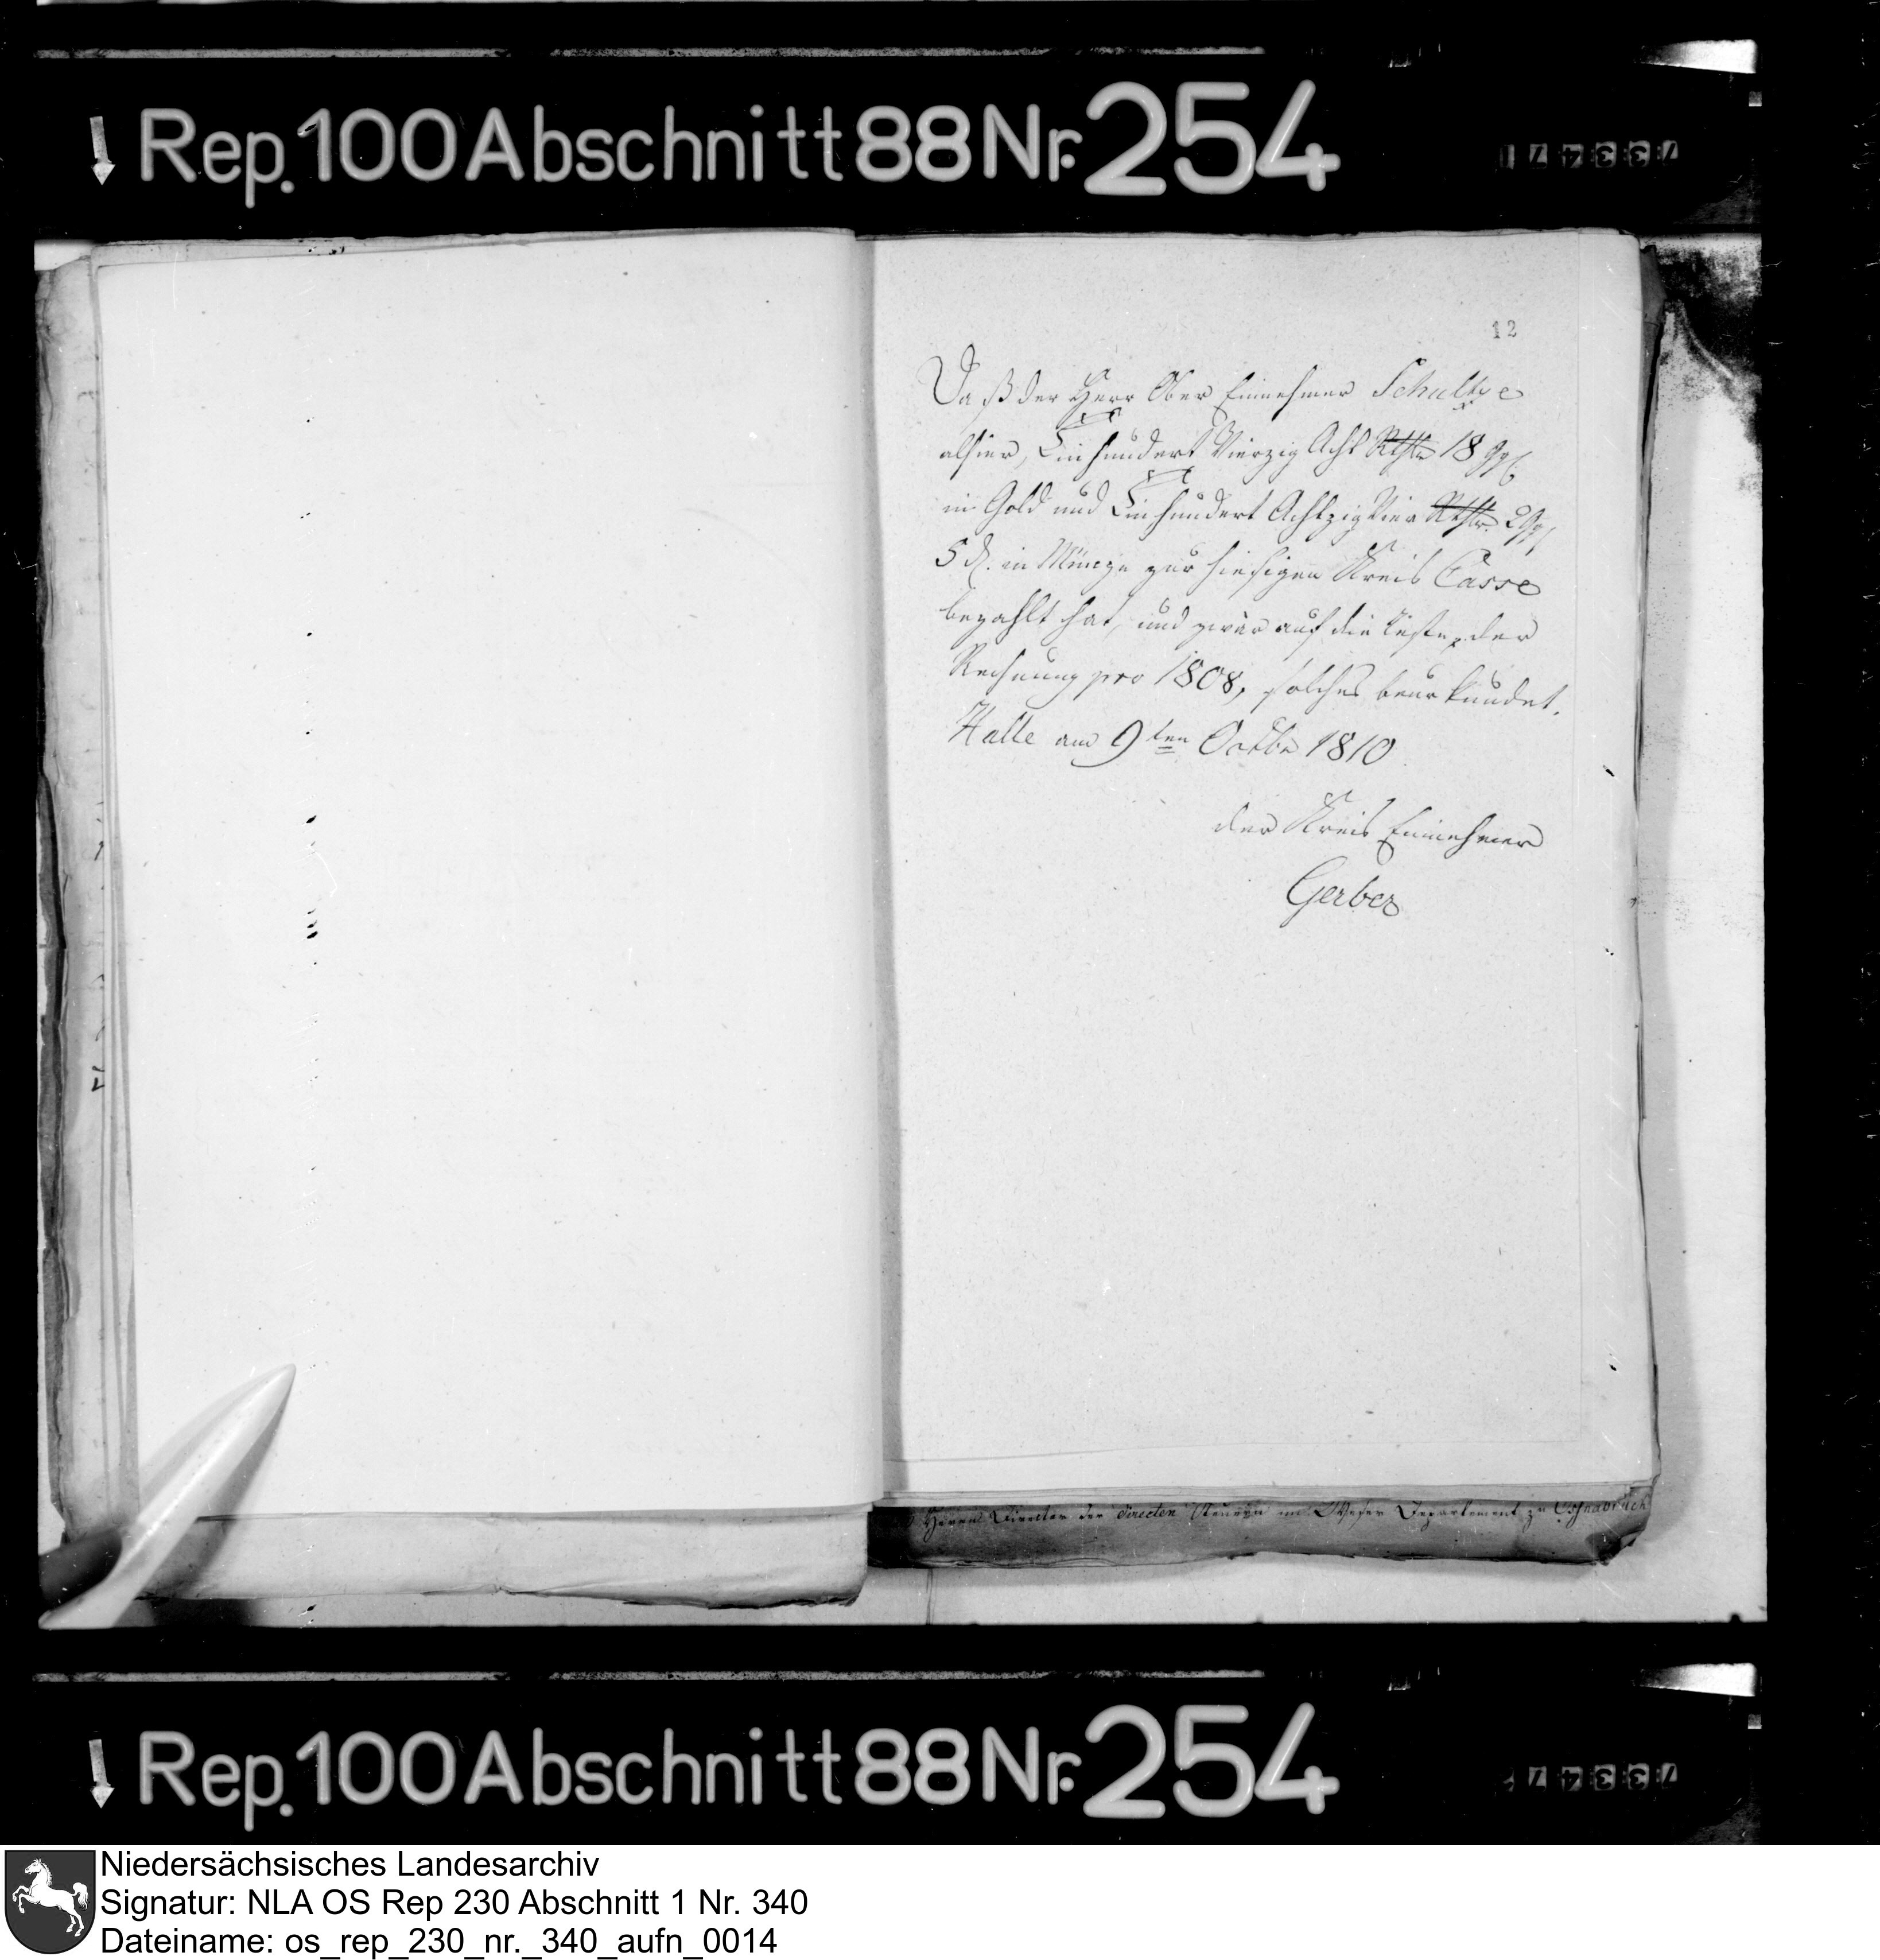 Rep. 100 Abschnitt 88 Nr. 254
12
Daß der Herr Ober Einnehmer Schultze
alhier, Einhundert Vierzig Acht Rthlr 18 ggl
in Gold und Einhundert Achtzig Vier Rthlr. 2 ggl
5 d. in Münze zur hiesigen Kreis Casse
bezahlt hat, und zwar auf die Reste der
Rechnung pro 1808, solches beurkundet.
Halle am 9ten Octbr 1810
der Kreis Einnehmer
Gerber
Herrn Director der directen Steuern im Weser Departement zu Osnabrück
Rep. 100 Abschnitt 88 Nr. 254
Niedersächsisches Landesarchiv
Signatur: NLA OS Rep 230 Abschnitt 1 Nr. 340
Dateiname: os_rep_230_nr._340_aufn_0014